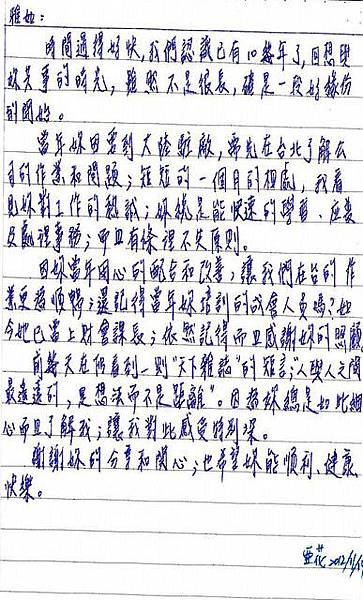 雅如：
時間過得好快，我們認識已有10幾年了，回想與
妳共事的時光，雖然不是很長，確是一段好緣份
的開始。
當年妳因需到大陸駐廠，需先在台北了解公
司的作業和問題；短短的一個月的相處，我看
見妳對工作的熱誠；妳總是能快速的學習、應變
及處理事務；而且有條理不失原則。
因妳當年用心的配合和改善；讓我們在台的作
業更為順暢；還記得當年妳培訓的成會人員嗎？如
今她已當上財會課長；依然記得而且感謝妳的照顧
前幾天在侷看到一則"天下雜誌"的短言；"人與人之間
最遙遠的，是想法而不是距離"。因為妳總是如此細
心而且了解我；讓我對此感受特別深。
謝謝妳的分享和關心；也希望妳能順利、健康、
快樂。
亞花 2012/11/